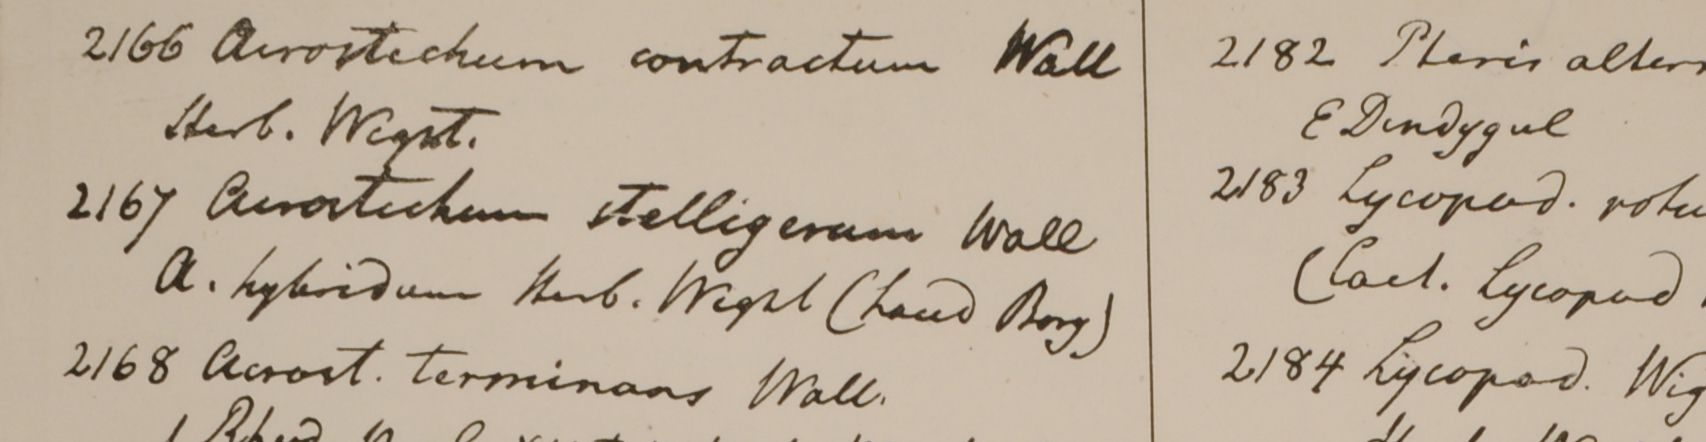 2166 Acrostichum contractum Wall
Herb. Wight.
2167 Acrostichum stelligerum Wall
A. hybridum Herb. Wight (haud Bory)
2168 Acrost. terminans Wall.
2182 Pteris altern
E Dindygul
2183 Lycopod. rotu
(Lael. Lycopod
2184 Lycopod. Wig